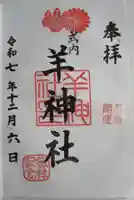 奉拝
式内
羊神社
令和七年十二月六日